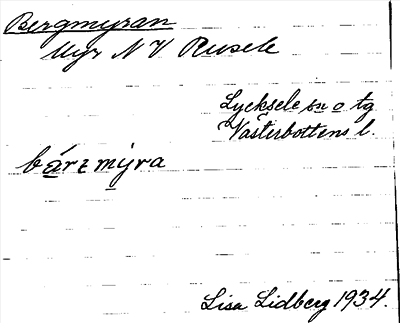 Bergmyran
Myr N V Rusele
Lycksele sn o tg
Västerbottens l.
bárzmýra
Lisa Lidberg 1934.